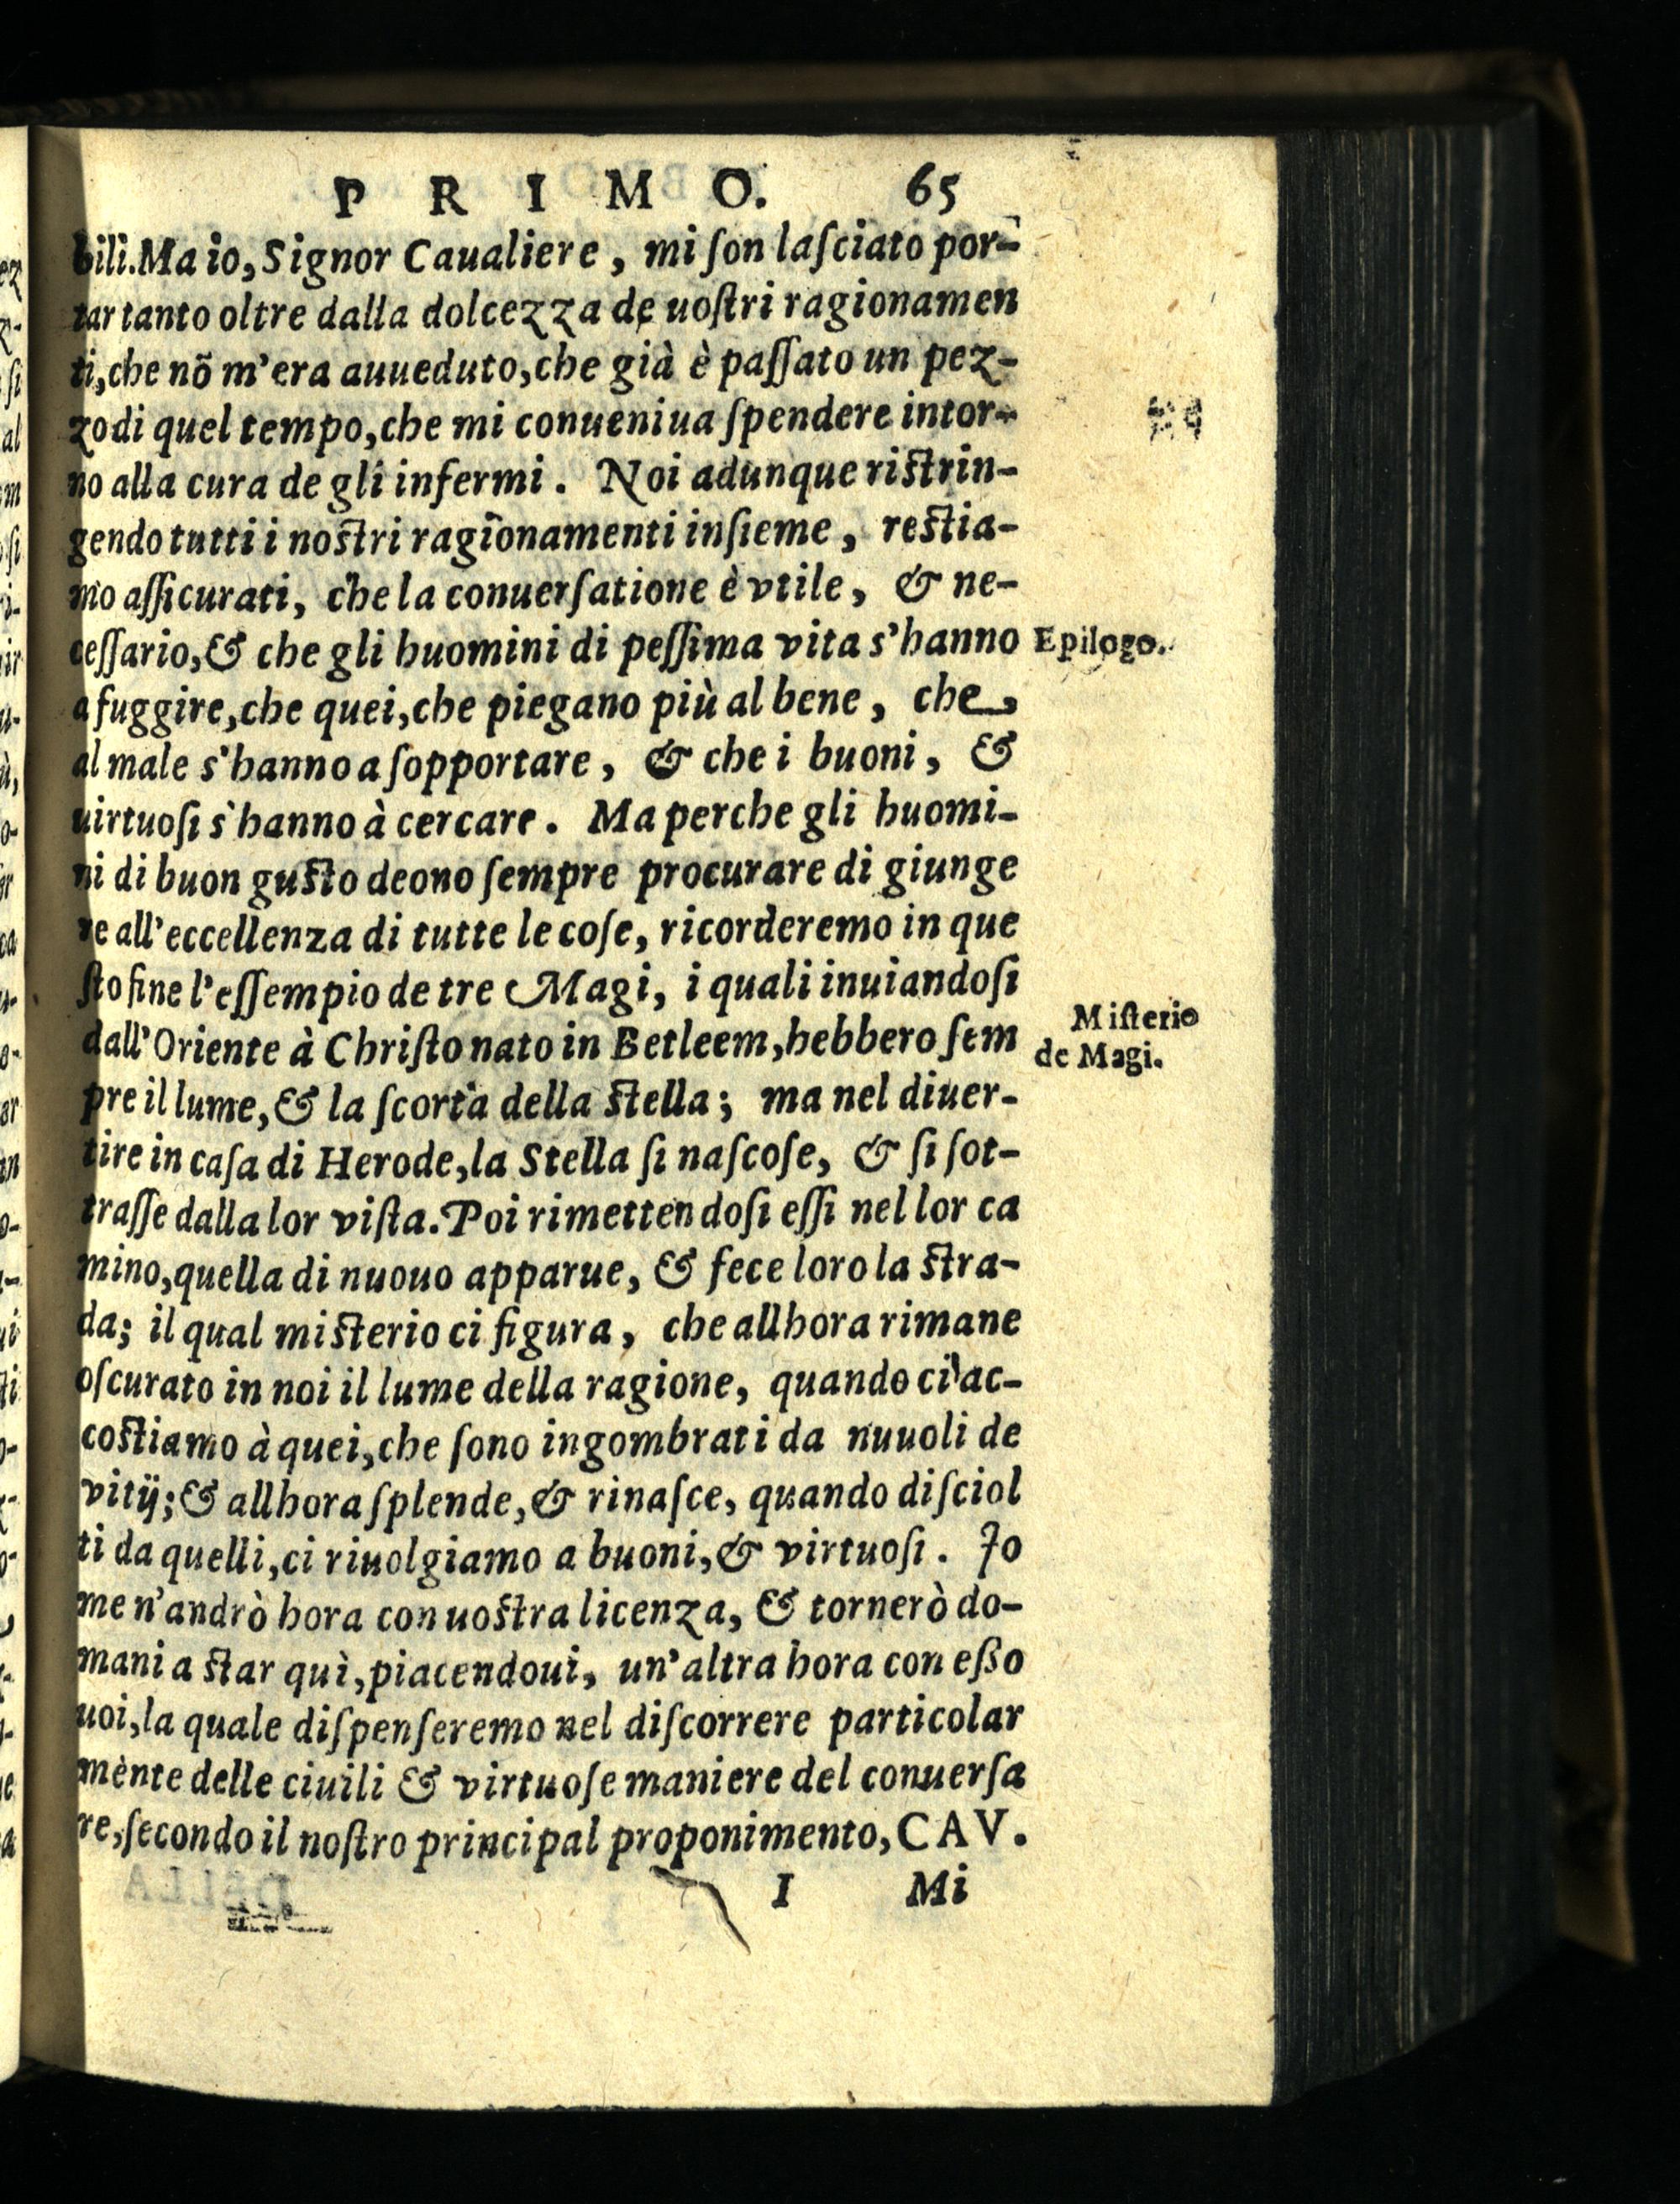 P R I M O. 65
bili. Ma io, Signor Caualiere, mi ſon laſciato por-
tar tanto oltre dalla dolcezza de uoſtri ragionamen
ti, che nõ m'era auueduto, che già è paſſato un pez-
zo di quel tempo, che mi conueniua ſpendere intor-
no alla cura de gli infermi. Noi adunque riſtrin-
gendo tutti i noſtri ragionamenti inſieme, reſtia-
mo aſſicurati, che la conuerſatione è vtile, & ne-
ceſſario, & che gli huomini di peſſima vita s'hanno
Epilogo.
a fuggire, che quei, che piegano più al bene, che
al male s'hanno a ſopportare, & che i buoni, &
uirtuoſi s'hanno à cercare. Ma perche gli huomi-
ni di buon guſto deono ſempre procurare di giunge
re all'eccellenza di tutte le coſe, ricorderemo in que
ſto fine l'eſſempio de tre Magi, i quali inuiandoſi
dall'Oriente à Chriſto nato in Betleem, hebbero ſem
Miſterio
de Magi.
pre il lume, & la ſcorta della ſtella; ma nel diuer-
tire in caſa di Herode, la Stella ſi naſcoſe, & ſi ſot-
traſſe dalla lor viſta. Poi rimettendoſi eſſi nel lor ca
mino, quella di nuouo apparue, & fece loro la ſtra-
da; il qual miſterio ci figura, che allhora rimane
oſcurato in noi il lume della ragione, quando ci ac-
coſtiamo à quei, che ſono ingombrati da nuuoli de
vitij; & allhora ſplende, & rinaſce, quando diſciol
ti da quelli, ci riuolgiamo a buoni, & virtuoſi. Io
me n'andrò hora con uoſtra licenza, & tornerò do-
mani a ſtar quì, piacendoui, un'altra hora con eßo
uoi, la quale diſpenſeremo nel diſcorrere particolar
mènte delle ciuili & virtuoſe maniere del conuerſa
re, ſecondo il noſtro principal proponimento, CAV.
I Mi